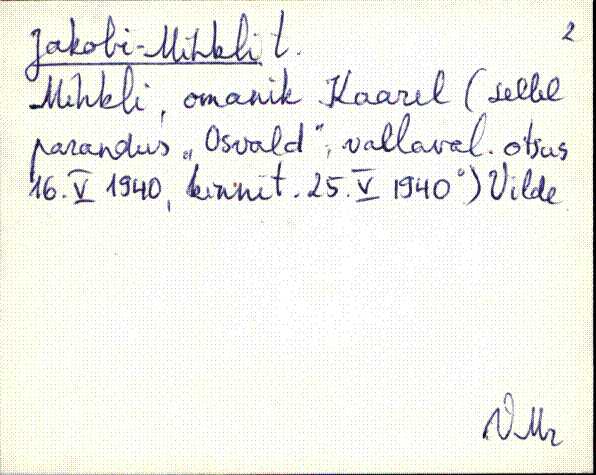 2
Jakobi-Mihkli t.
Mihkli, omanik Kaarel (sellel
parandus „Osvald", vallaval. otsus
16. V 1940, kinnit. 25. V 1940) Vilde
VMr